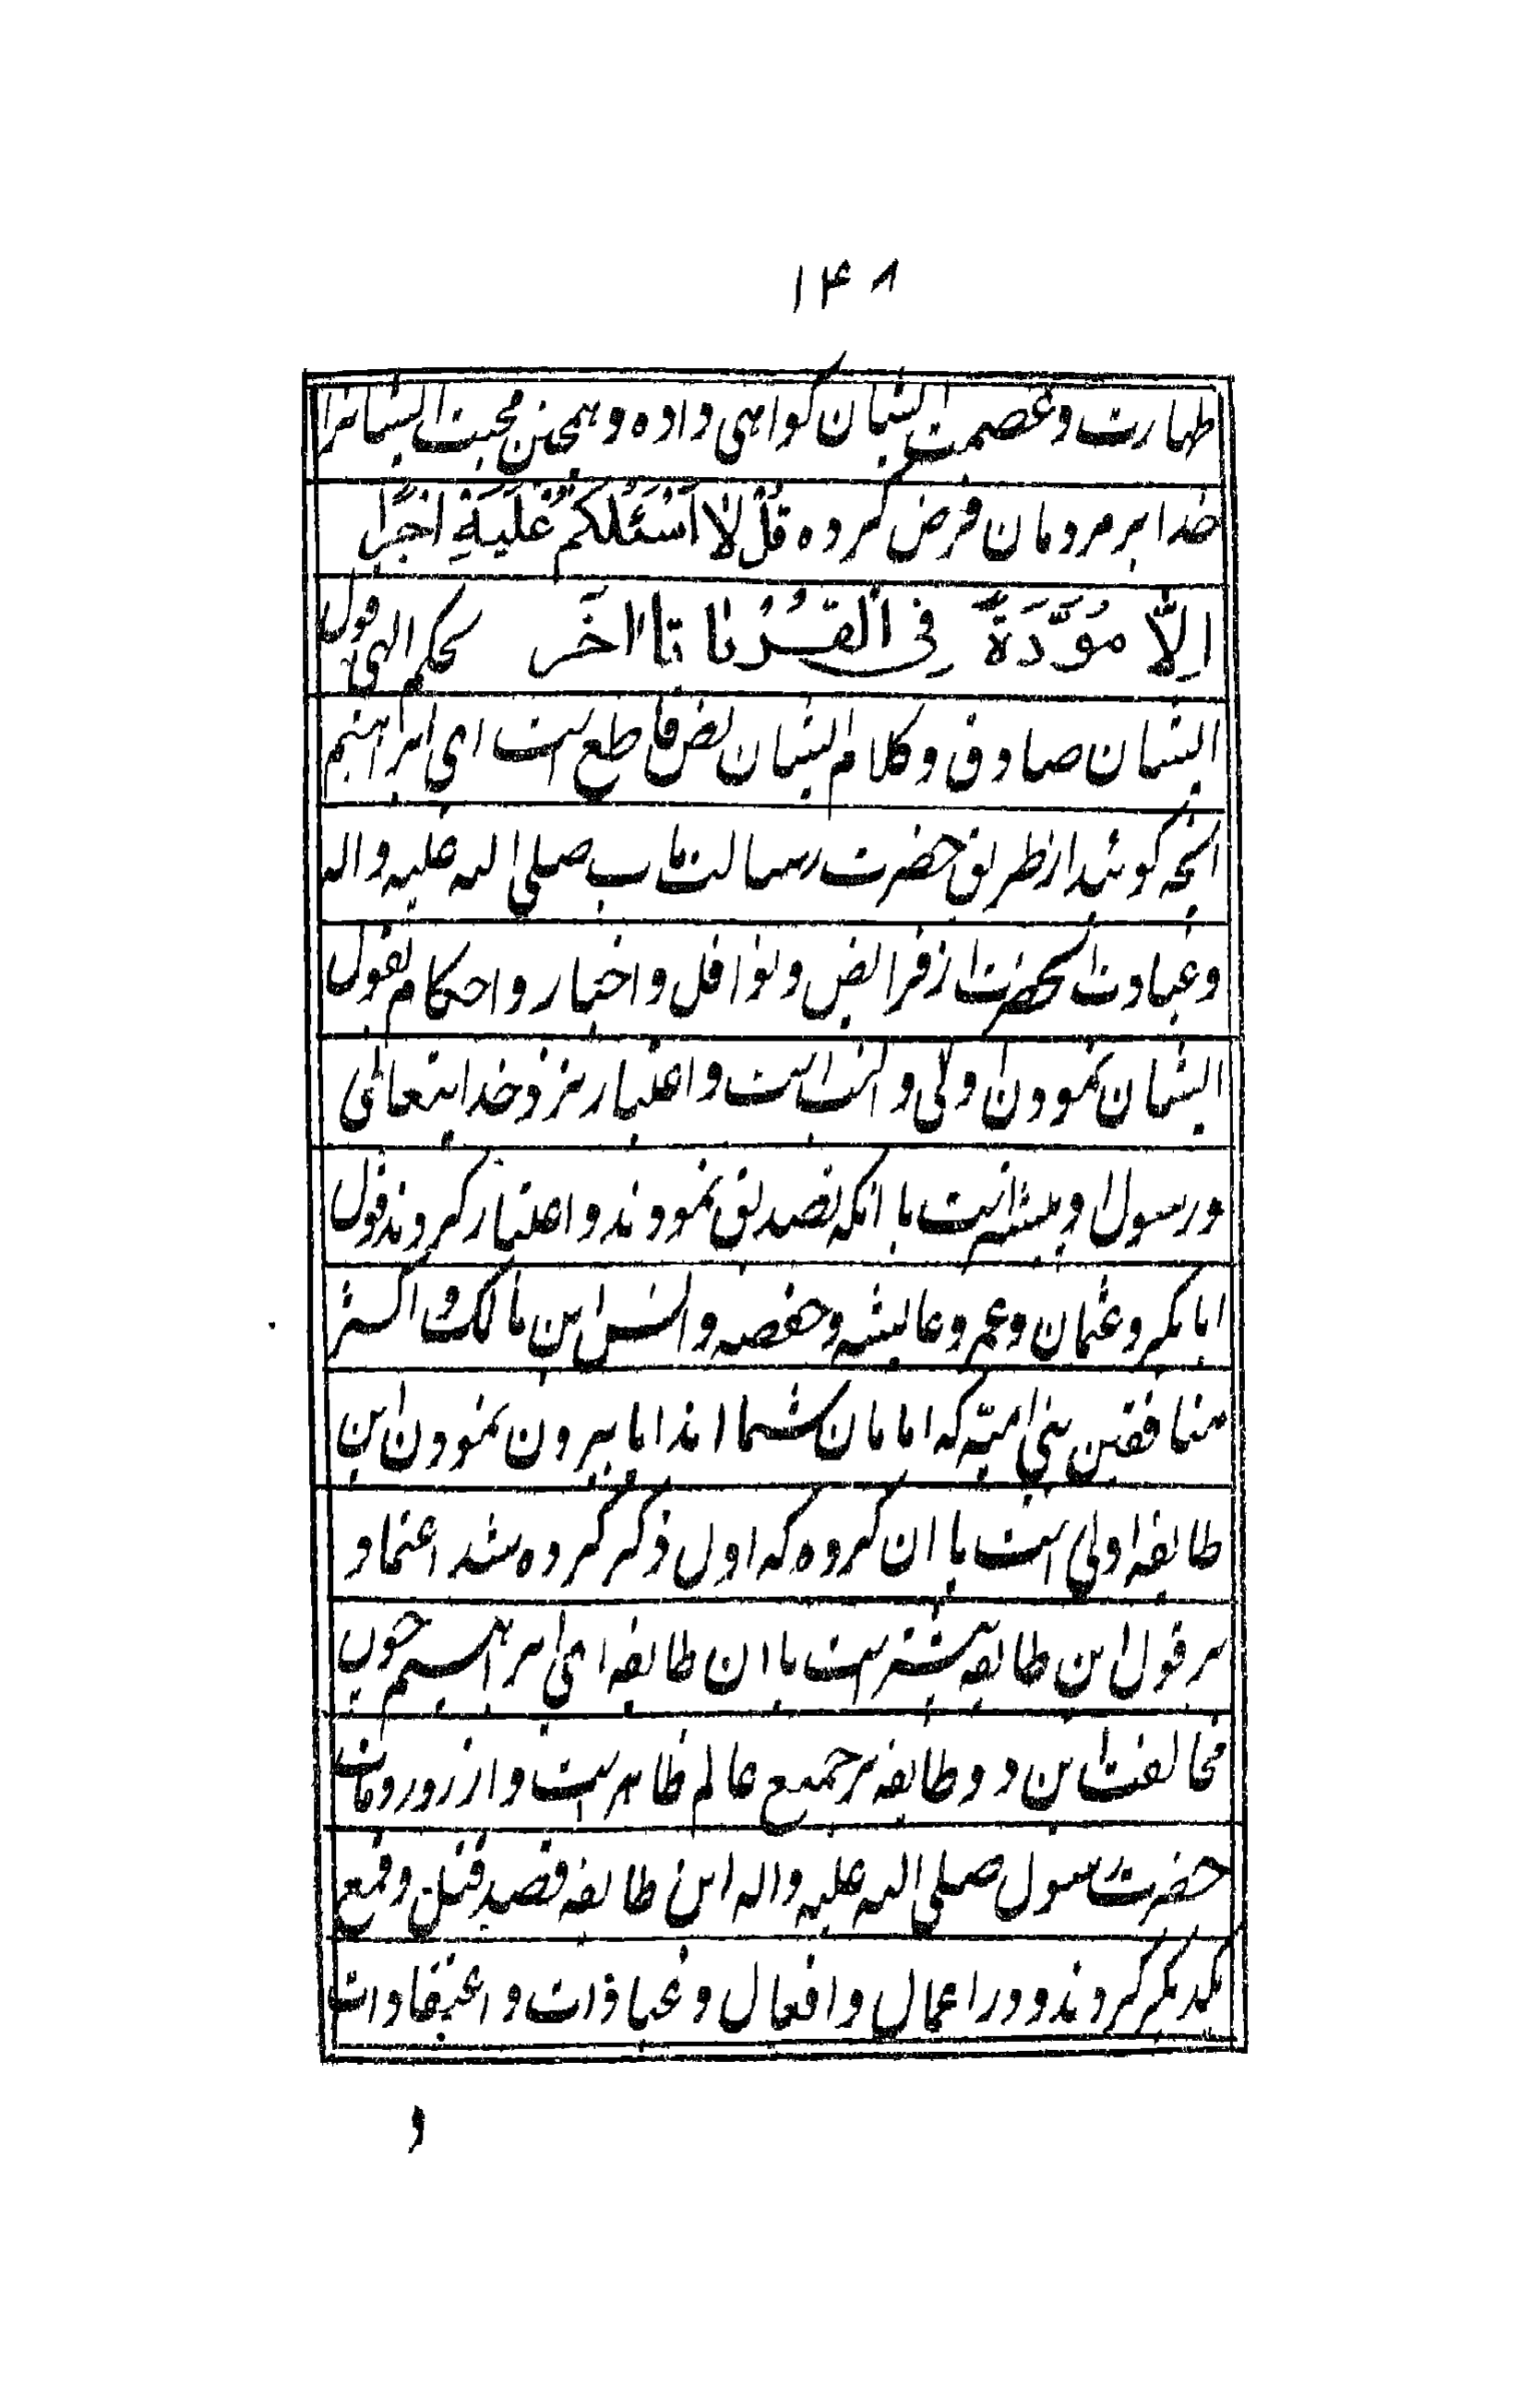 ۱۴۸
طهارت و عصمت ایشان کواهی داده و همچنین محبت ایشانرا
خدا بر مردمان فرض کرده قُلْ لَا اَسْئَلُکُمْ عَلَیْهِ اَجْرًا
اِلَّا مُوَدَّةً فِی الْقُرْبٰا تا اخَر بحکم الهی قول
ایشان صادق و کلام ایشان نص قاطع است ای ابراهیم
انچه کویند از طریق حضرت رسالت ماب صلی الله علیه واله
و عبادت انحضرت از فرایض و نوافل و اخبار و احکام بقول
ایشان نمودن اولی و انسب است و اعتبار نزد خدایتعالی
و رسول او بیشتر است با انکه تصدیق نمودند و اعتبار کردند قول
ابابکر و عثمان و عمر و عایشه و حفصه و انس ابن مالک و اکثر
منافقین بنی امیّه که امامان شما اند اما بیرون نمودن این
طایفه اولی است با ان کروه که اول ذکر کرده شد اعتماد
بر قول این طایفه بیشتر است با ان طایفه ای ابراهیم چون
مخالفت این دو طایفه بر جمیع عالم ظاهر است و از روز وفات
حضرت رسول صلی الله علیه واله این طایفه قصد قتل و قمع
یکدیکر کردند و در اعمال و افعال و عبادات و اعتقادات
و